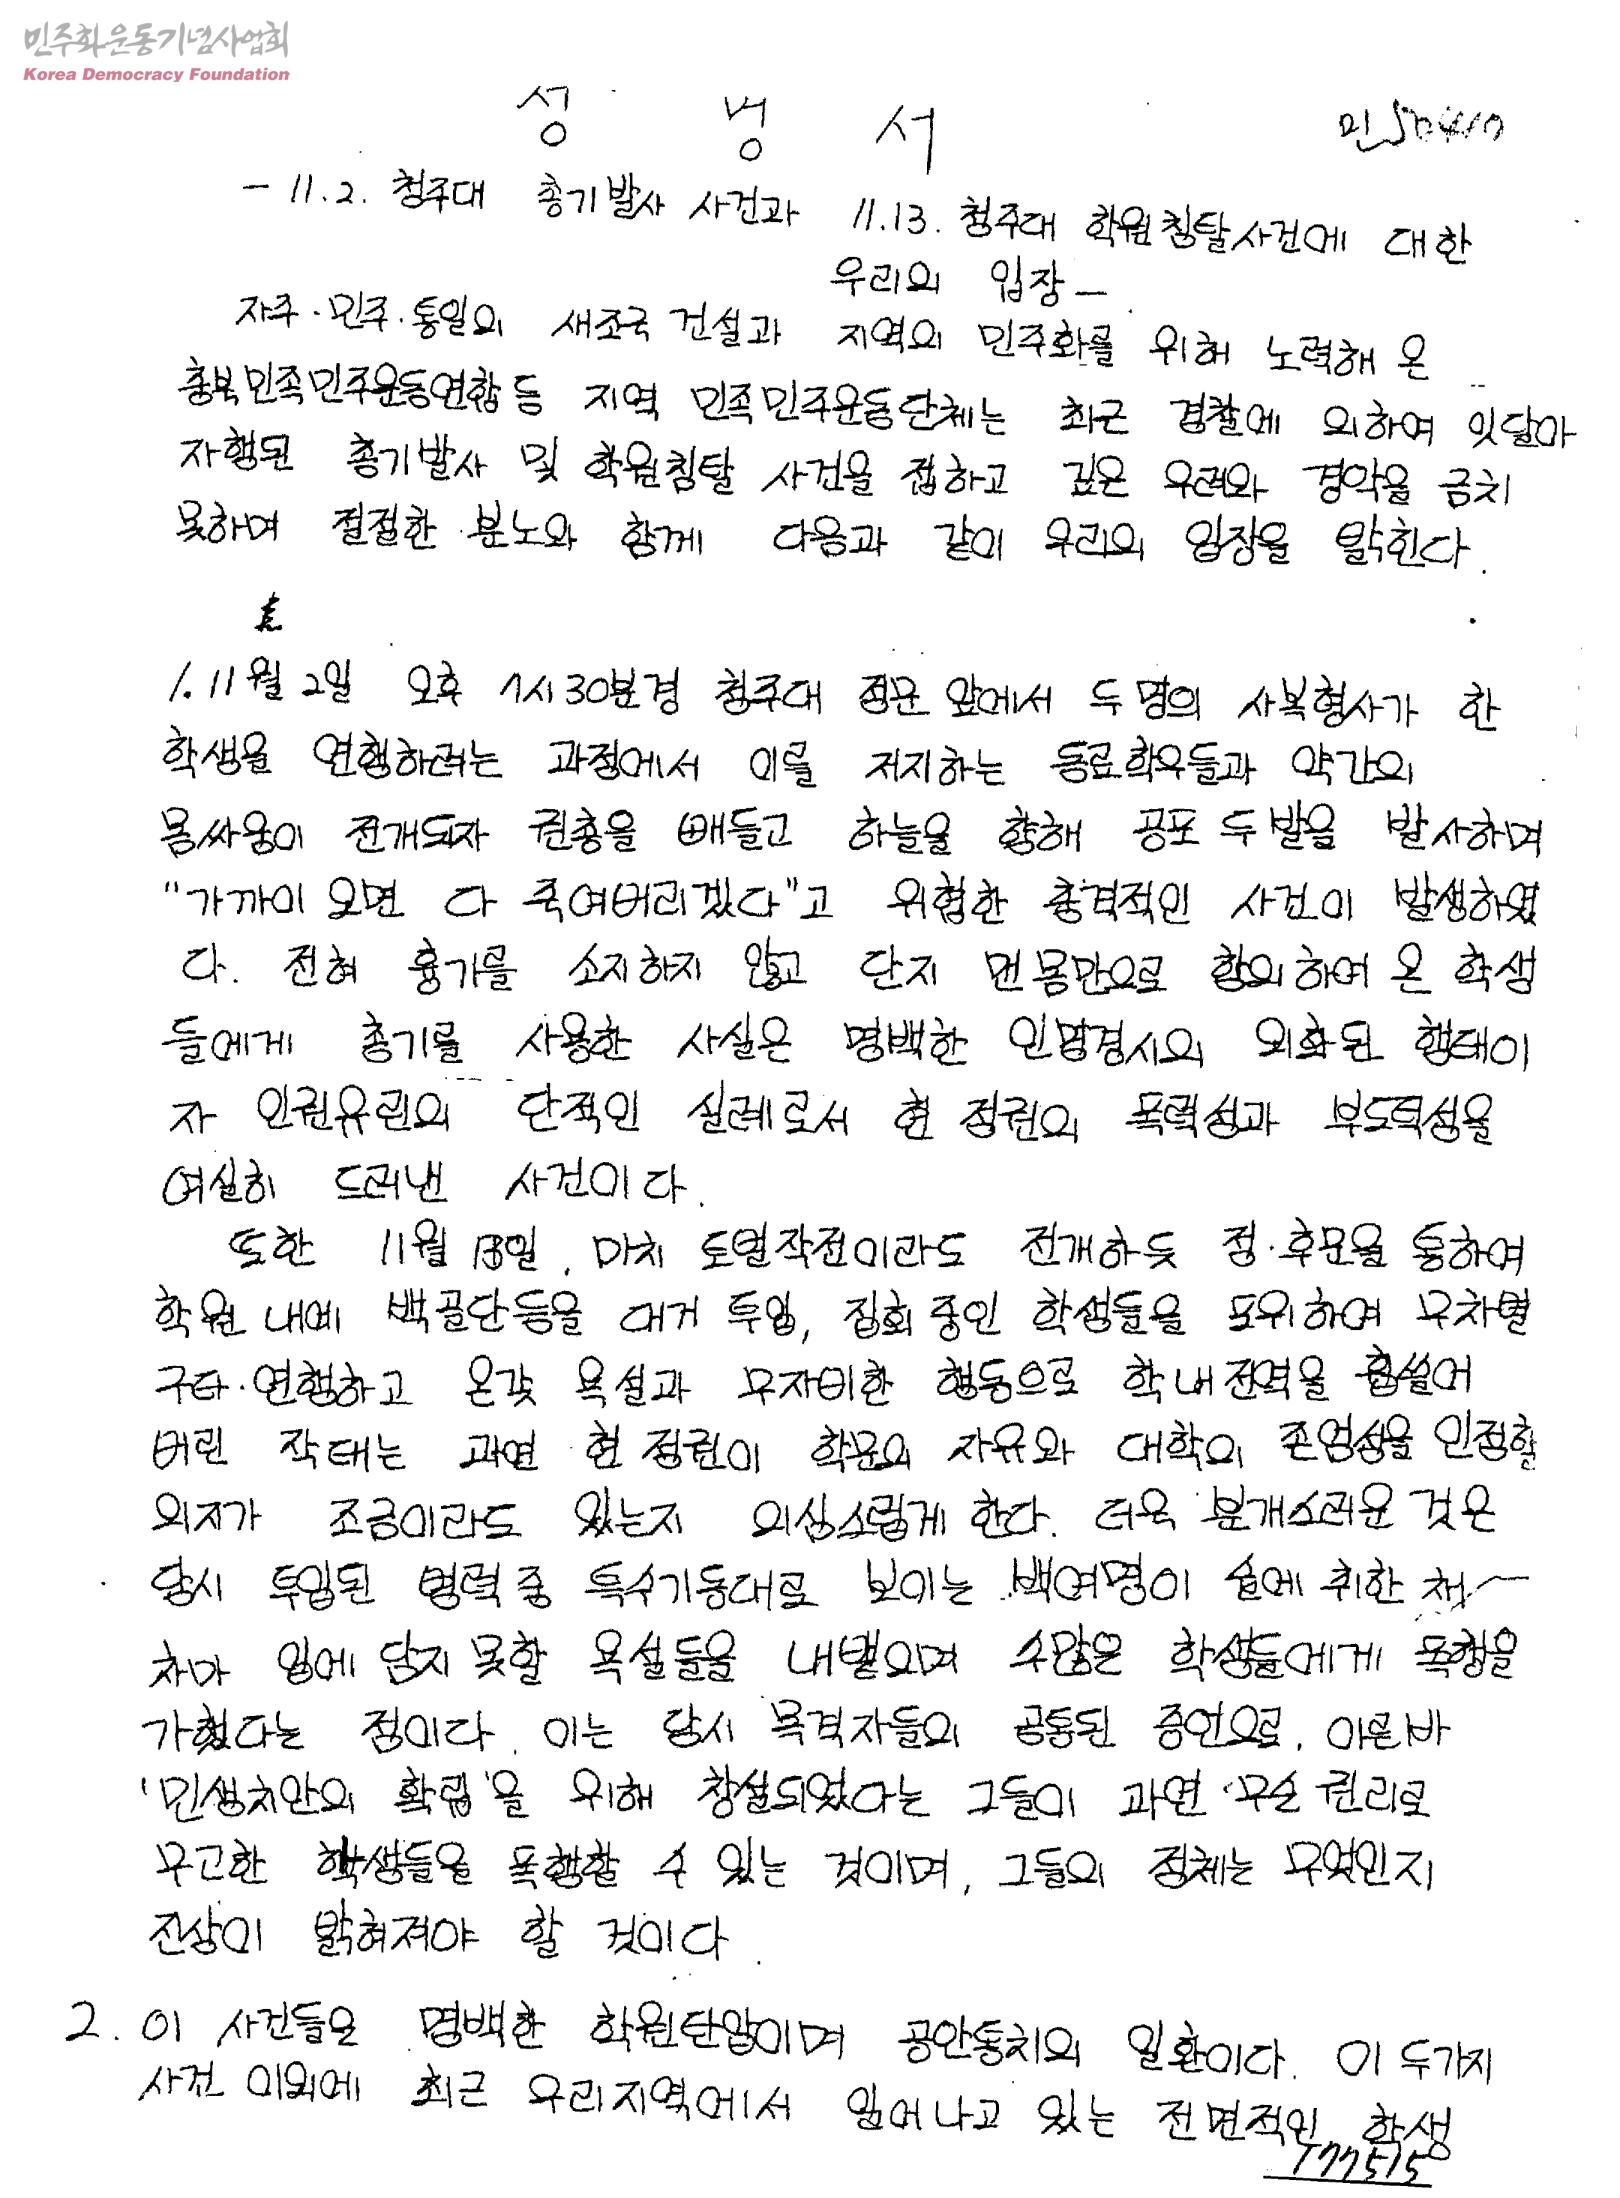 민주화운동기념사업회
Korea Democracy Foundation
성 명 서
민50410
- 11.2. 청주대 총기발사 사건과 11.13. 청주대 학원침탈사건에 대한
우리의 입장 -
자주·민주·통일의 새조국 건설과 지역의 민주화를 위해 노력해 온
충북민족민주운동연합 등 지역 민족민주운동단체는 최근 경찰에 의하여 잇달아
자행된 총기발사 및 학원침탈 사건을 접하고 깊은 우려와 경악을 금치
못하며 절절한 분노와 함께 다음과 같이 우리의 입장을 밝힌다.
1. 11월 2일 오후 7시 30분경 청주대 정문 앞에서 두 명의 사복형사가 한
학생을 연행하려는 과정에서 이를 저지하는 동료학우들과 약간의
몸싸움이 전개되자 권총을 빼들고 하늘을 향해 공포 두 발을 발사하며
“가까이 오면 다 죽여버리겠다”고 위협한 충격적인 사건이 발생하였
다. 전혀 흉기를 소지하지 않고 단지 맨몸만으로 항의하여 온 학생
들에게 총기를 사용한 사실은 명백한 인명경시의 외화된 행태이
자 인권유린의 단적인 실례로서 현 정권의 폭력성과 부도덕성을
여실히 드러낸 사건이다.
또한 11월 13일, 마치 토벌작전이라도 전개하듯 정·후문을 통하여
학원 내에 백골단등을 대거 투입, 집회 중인 학생들을 포위하여 무차별
구타·연행하고 온갖 욕설과 무자비한 행동으로 학내전역을 휩쓸어
버린 작태는 과연 현 정권이 학문의 자유와 대학의 존엄성을 인정할
의지가 조금이라도 있는지 의심스럽게 한다. 더욱 분개스러운 것은
당시 투입된 병력 중 특수기동대로 보이는 백여명이 술에 취한 채
차마 입에 담지 못할 욕설들을 내뱉으며 수많은 학생들에게 폭행을
가했다는 점이다. 이는 당시 목격자들의 공통된 증언으로, 이른바
'민생치안의 확립'을 위해 창설되었다는 그들이 과연 무슨 권리로
무고한 학생들을 폭행할 수 있는 것이며, 그들의 정체는 무엇인지
진상이 밝혀져야 할 것이다.
2. 이 사건들은 명백한 학원탄압이며 공안통치의 일환이다. 이 두가지
사건 이외에 최근 우리지역에서 일어나고 있는 전면적인 학생
177515